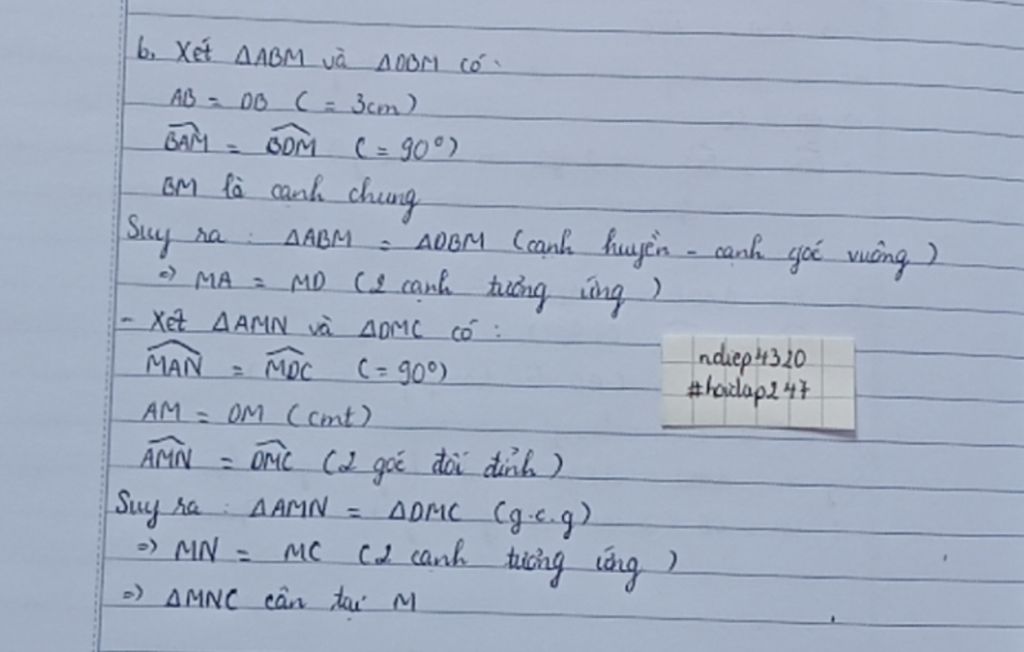 b. Xét ΔABM và ΔDBM có:
AB = DB (= 3cm)
\widehat{BAM} = \widehat{BDM} (= 90°)
BM là cạnh chung
Suy ra : ΔABM = ΔDBM (cạnh huyền - cạnh góc vuông)
=> MA = MD (2 cạnh tương ứng)
- Xét ΔAMN và ΔDMC có :
\widehat{MAN} = \widehat{MDC} (= 90°)
AM = DM (cmt)
\widehat{AMN} = \widehat{DMC} (2 góc đối đỉnh)
Suy ra : ΔAMN = ΔDMC (g.c.g)
=> MN = MC (2 cạnh tương ứng)
=> ΔMNC cân tại M
ndiep4320
#hoidap247